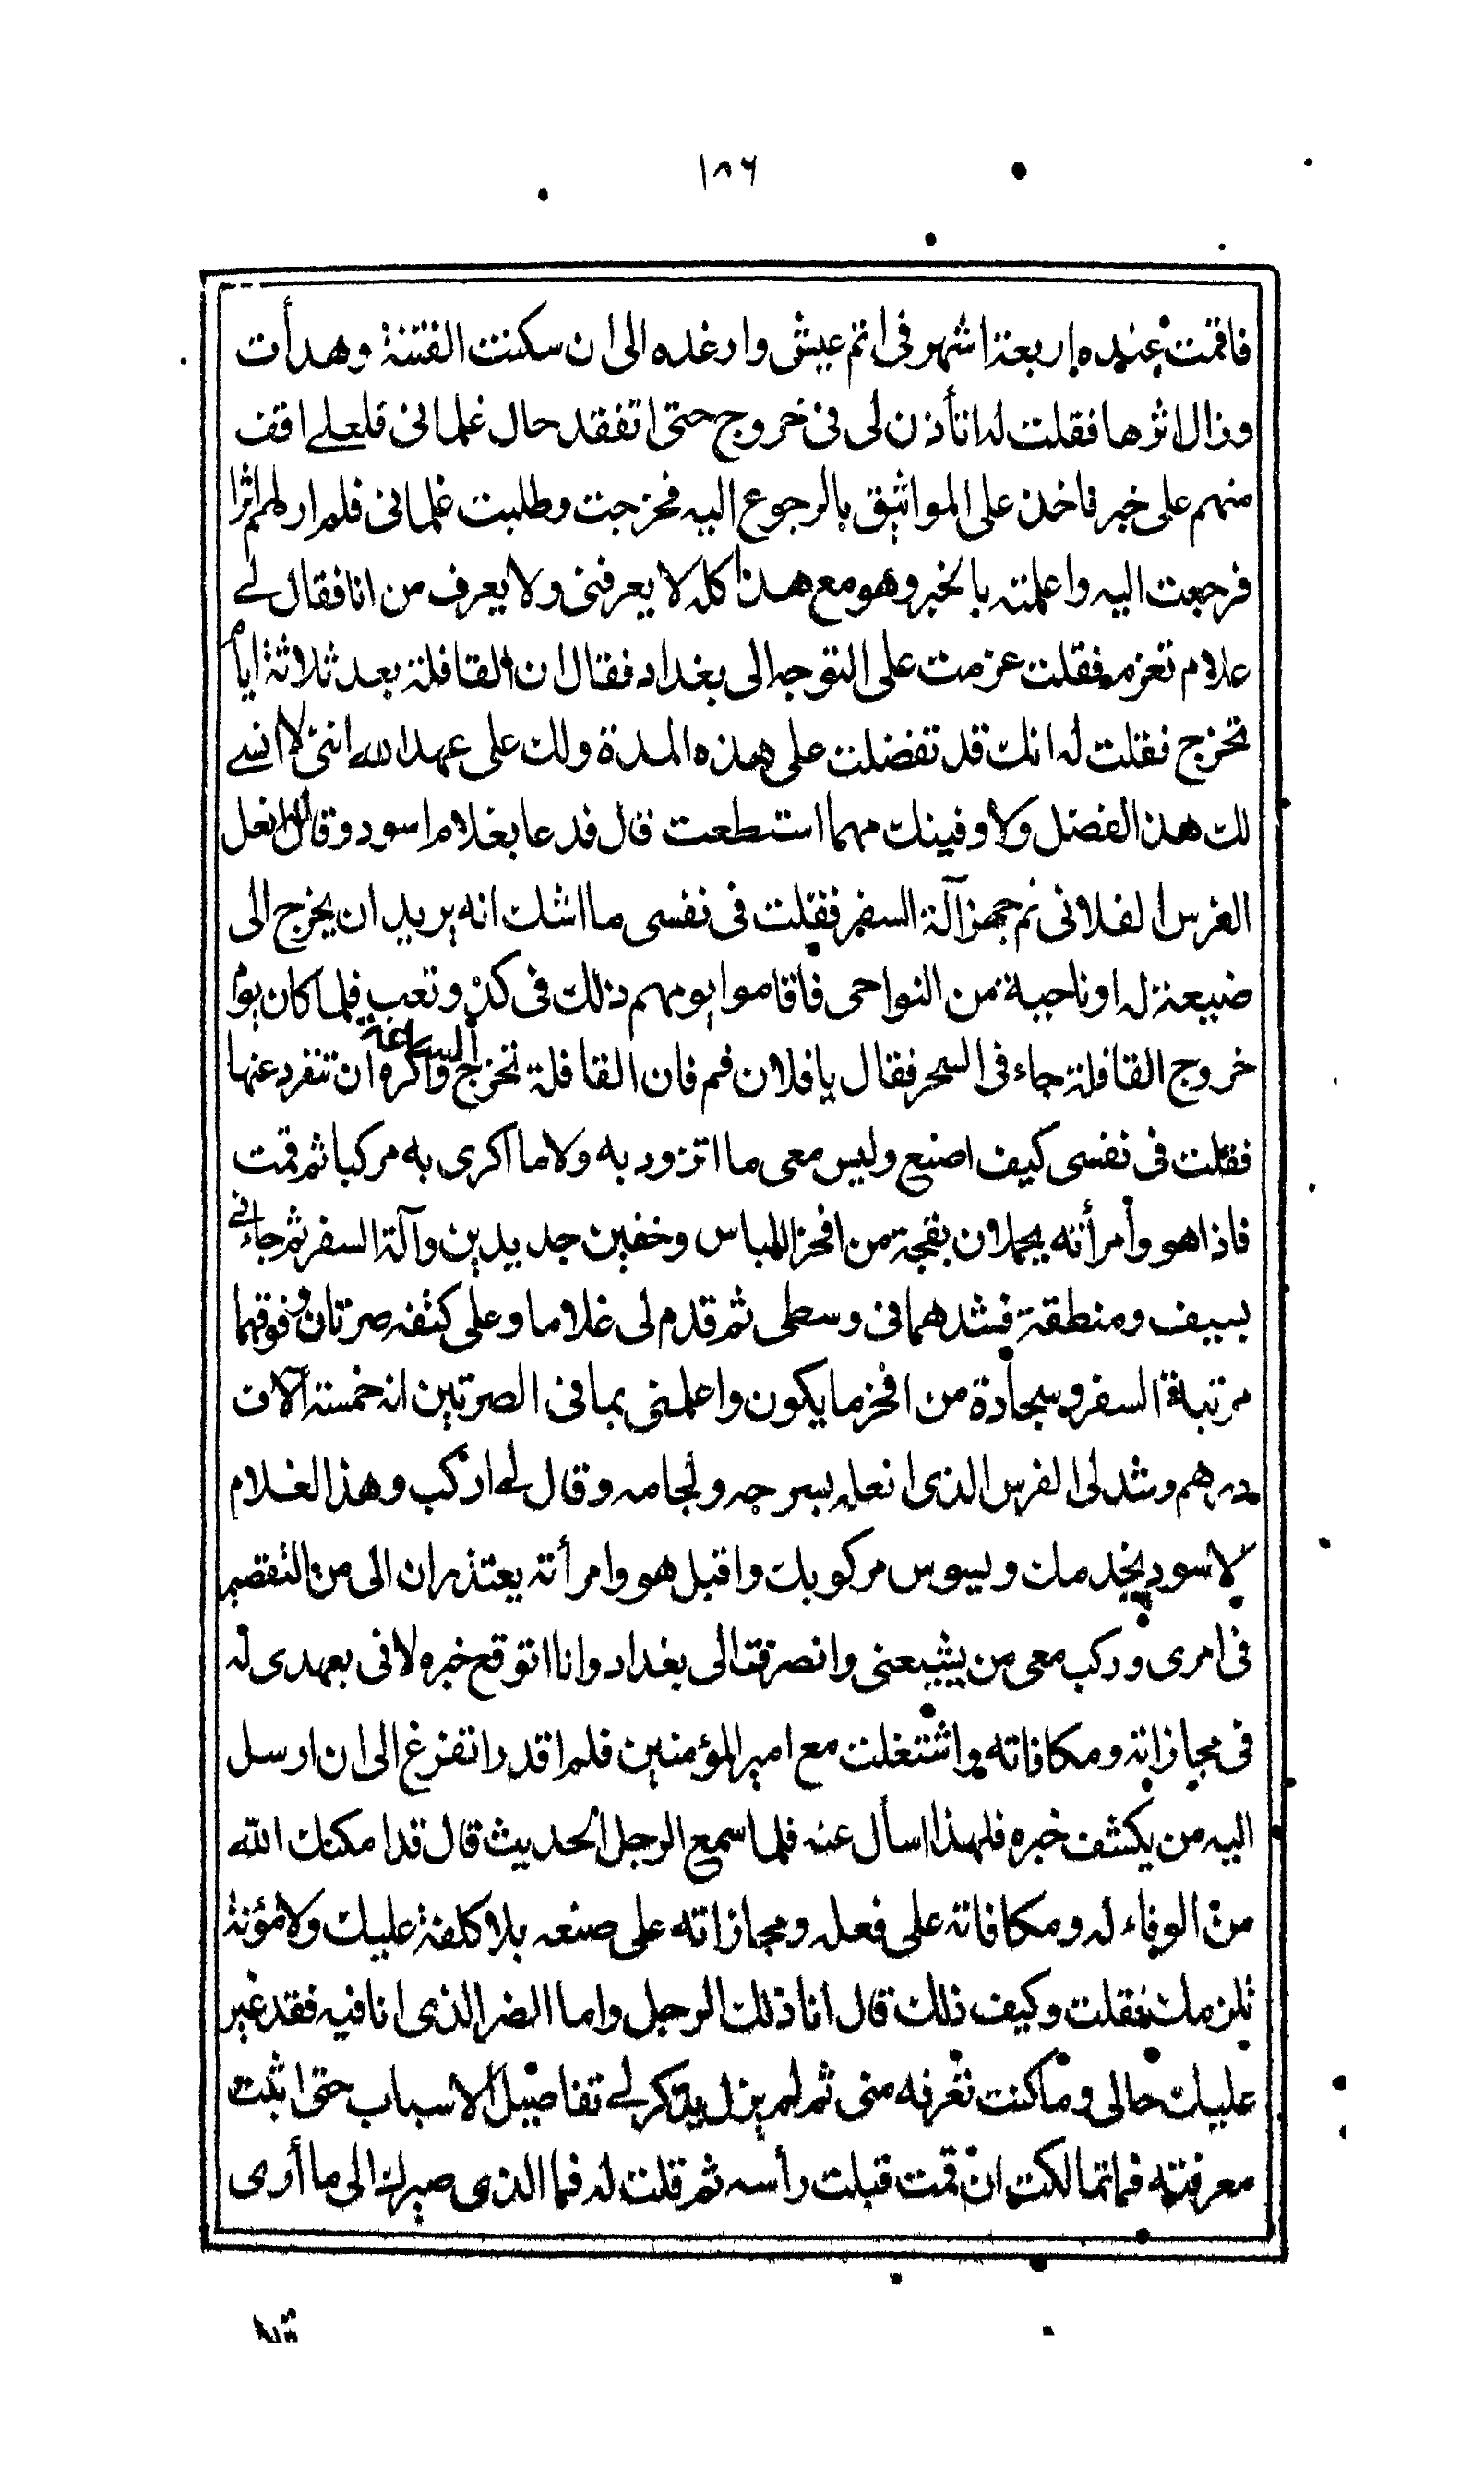 ١٨٦
فاقمت عنده اربعة اشهر فى اتم عيش وارغده الى ان سكنت الفتنة وهدأت
وزال اثرها فقلت له اتأذن لى فى خروج حتى اتفقد حال غلمانى فلعلے اقف
منهم على خبر فاخذ على المواثيق بالرجوع اليه فخرجت وطلبت غلمانى فلم ار لهم اثرا
فرجعت اليه واعلمته بالخبر وهو مع هذا كله لا يعرفنى ولا يعرف من انا فقال لے
علام تعزم فقلت عزمت على التوجه الى بغداد فقال ان القافلة بعد ثلاثة ايام
تخرج فقلت له انك قد تفضلت على هذه المدة ولك على عهد الله اننى لا انسے
لك هذا الفضل ولاوفينك مهما استطعت قال فدعا بغلام اسود وقال له انعل
الفرس الفلانى ثم جهز آلة السفر فقلت فى نفسى ما اشك انه يريد ان يخرج الى
ضيعة له او ناحية من النواحى فاقاموا يومهم ذلك فى كد وتعب فلما كان يوم
خروج القافلة جاء فى السحر فقال يا فلان قم فان القافلة تخرج الساعة واكره ان تنفرد عنها
فقلت فى نفسى كيف اصنع وليس معى ما اتزود به ولا ما اكرى به مركبا ثم قمت
فاذا هو وامرأته يحملان بقجة من افخر اللباس وخفين جديدين وآلة السفر ثم جاءنے
بسيف ومنطقة فشدهما فى وسطى ثم قدم لى غلاما وعلى كتفه صرتان وفوقهما
مرتبة السفر وسجادة من افخر ما يكون واعلمنى بما فى الصرتين انه خمسة آلاف
درهم وشد لى الفرس الذى انعله بسرجه ولجامه وقال لے اركب وهذا الغلام
الاسود يخدمك ويسوس مركوبك واقبل هو وامرأته يعتذران الى من التقصير
فى امرى وركب معى من يشيعنى وانصرفت الى بغداد وانا اتوقع خبره لافى بعهدى له
فى مجازاته ومكافاته واشتغلت مع امير المؤمنين فلم اقدر اتفرغ الى ان ارسل
اليه من يكشف خبره فلهذا اسأل عنه فلما سمع الرجل الحديث قال قد امكنك الله
من الوفاء له ومكافاته على فعله ومجازاته على صنعه بلا كلفة عليك ولا مؤنة
تلزمك فقلت وكيف ذلك قال انا ذلك الرجل واما الضر الذى انا فيه فقد غير
عليك حالى وما كنت تعرفه منى ثم لم يزل يذكر لے تفاصيل الاسباب حتى اثبت
معرفته فما تمالكت ان قمت قبلت رأسه ثم قلت له فما الذى صيرك الى ما أرى